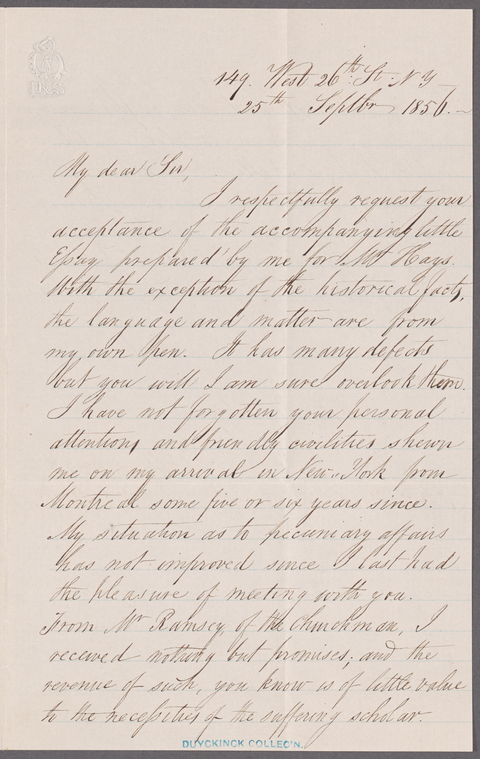 149. West 26th St. N Y
25th Septbr 1856.
My dear Sir,
I respectfully request your
acceptance of the accompanying little
Essay prepared by me for Mr Hays.
With the exception of the historical facts,
the language and matter are from
my own pen. It has many defects
but you will I am sure overlook them.
I have not forgotten your personal
attention, and friendly civilities shewn
me on my arrival in New-York from
Montreal some five or six years since.
My situation as to pecuniary affairs
has not improved since I last had
the pleasure of meeting with you.
From Mr Ramsey of the Churchman, I
received nothing but promises; and the
revenue of such, you know is of little value
to the necessities of the suffering scholar.
DUYCKINCK COLLEC'N.